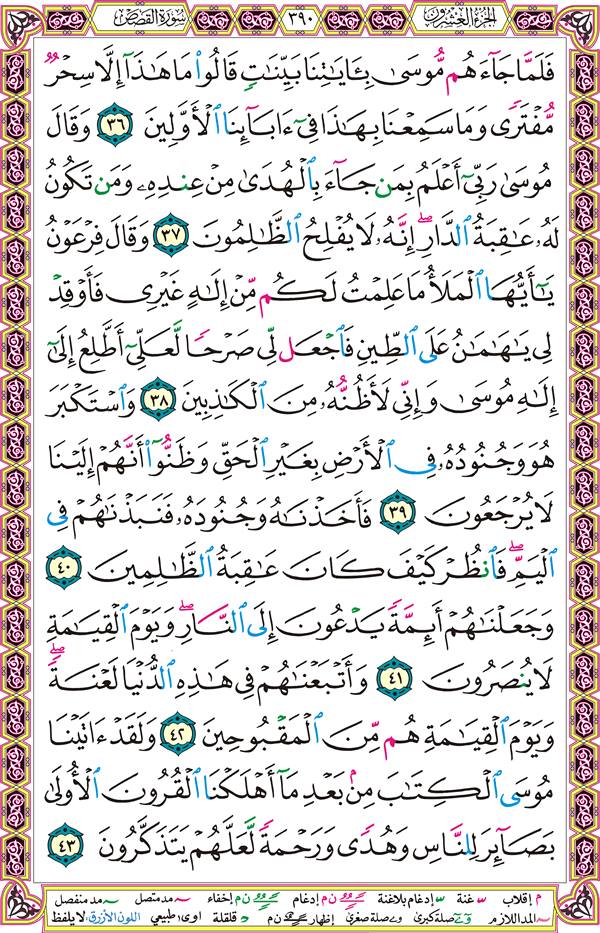 الجزء العشرون ٣٩٠ سورة القصص
فَلَمَّا جَآءَهُم مُّوسَىٰ بِـَٔايَٰتِنَا بَيِّنَٰتٖ قَالُواْ مَا هَٰذَآ إِلَّا سِحۡرٞ
مُّفۡتَرٗى وَمَا سَمِعۡنَا بِهَٰذَا فِيٓ ءَابَآئِنَا ٱلۡأَوَّلِينَ ٣٦ وَقَالَ
مُوسَىٰ رَبِّيٓ أَعۡلَمُ بِمَن جَآءَ بِٱلۡهُدَىٰ مِنۡ عِندِهِۦ وَمَن تَكُونُ
لَهُۥ عَٰقِبَةُ ٱلدَّارِۚ إِنَّهُۥ لَا يُفۡلِحُ ٱلظَّٰلِمُونَ ٣٧ وَقَالَ فِرۡعَوۡنُ
يَٰٓأَيُّهَا ٱلۡمَلَأُ مَا عَلِمۡتُ لَكُم مِّنۡ إِلَٰهٍ غَيۡرِي فَأَوۡقِدۡ
لِي يَٰهَٰمَٰنُ عَلَى ٱلطِّينِ فَٱجۡعَل لِّي صَرۡحٗا لَّعَلِّيٓ أَطَّلِعُ إِلَىٰٓ
إِلَٰهِ مُوسَىٰ وَإِنِّي لَأَظُنُّهُۥ مِنَ ٱلۡكَٰذِبِينَ ٣٨ وَٱسۡتَكۡبَرَ
هُوَ وَجُنُودُهُۥ فِي ٱلۡأَرۡضِ بِغَيۡرِ ٱلۡحَقِّ وَظَنُّوٓاْ أَنَّهُمۡ إِلَيۡنَا
لَا يُرۡجَعُونَ ٣٩ فَأَخَذۡنَٰهُ وَجُنُودَهُۥ فَنَبَذۡنَٰهُمۡ فِي
ٱلۡيَمِّۖ فَٱنظُرۡ كَيۡفَ كَانَ عَٰقِبَةُ ٱلظَّٰلِمِينَ ٤٠
وَجَعَلۡنَٰهُمۡ أَئِمَّةٗ يَدۡعُونَ إِلَى ٱلنَّارِۖ وَيَوۡمَ ٱلۡقِيَٰمَةِ
لَا يُنصَرُونَ ٤١ وَأَتۡبَعۡنَٰهُمۡ فِي هَٰذِهِ ٱلدُّنۡيَا لَعۡنَةٗۖ
وَيَوۡمَ ٱلۡقِيَٰمَةِ هُم مِّنَ ٱلۡمَقۡبُوحِينَ ٤٢ وَلَقَدۡ ءَاتَيۡنَا
مُوسَى ٱلۡكِتَٰبَ مِنۢ بَعۡدِ مَآ أَهۡلَكۡنَا ٱلۡقُرُونَ ٱلۡأُولَىٰ
بَصَآئِرَ لِلنَّاسِ وَهُدٗى وَرَحۡمَةٗ لَّعَلَّهُمۡ يَتَذَكَّرُونَ ٤٣
م إقلاب غنة إدغام بلاغنة ن م إدغام ن م إخفاء مد متصل مد منفصل
المد اللازم صلة كبرى صلة صغرى إظهار ن م قلقلة اوى طبيعي اللون الأزرق لا يلفظ